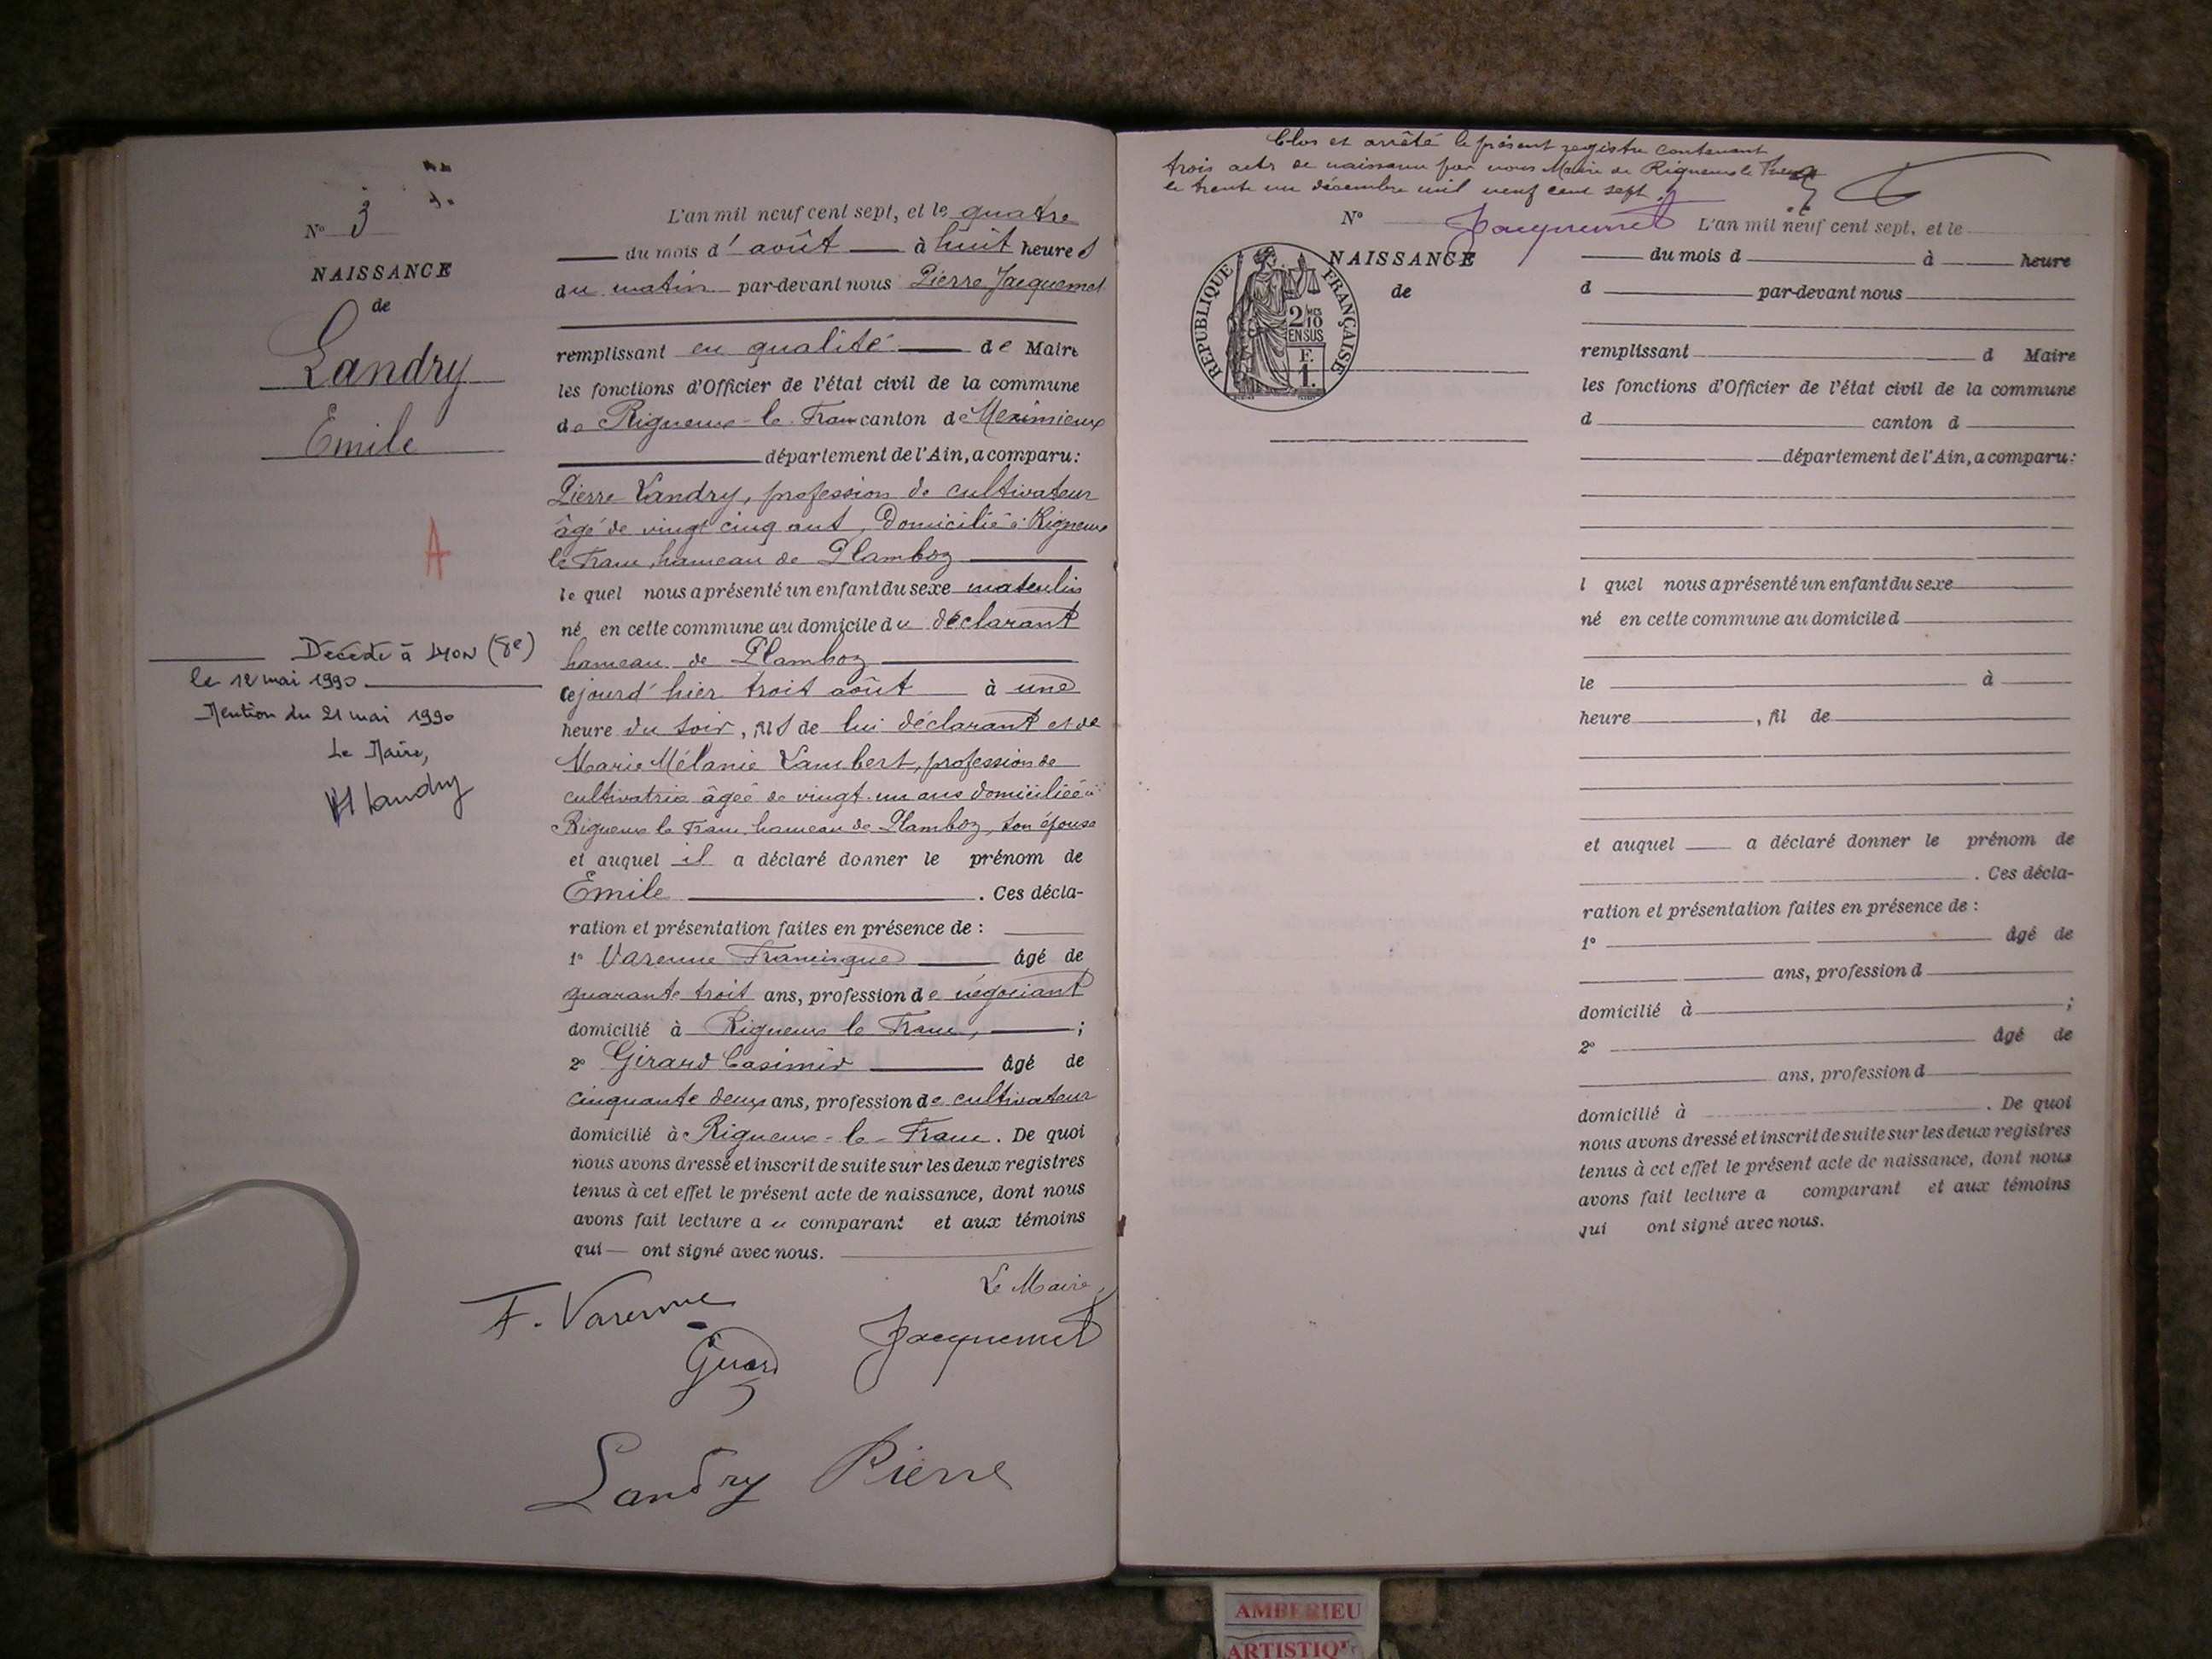 N° 3
NAISSANCE
de
Landry
Emile
A
Décédé à LYON (8e)
le 12 mai 1990
Mention du 21 mai 1990
Le Maire,
Landry
L'an mil neuf cent sept, et le quatre
du mois d'août à huit heures
du matin par-devant nous Pierre Jacquemet
remplissant en qualité de Maire
les fonctions d'Officier de l'état civil de la commune
de Rigneux-le-Franc canton de Meximieux
département de l'Ain, a comparu:
Pierre Landry, profession de cultivateur
âgé de vingt cinq ans, domicilié à Rigneux
le Franc, hameau de Plamboz
lequel nous a présenté un enfant du sexe masculin
né en cette commune au domicile du déclarant
hameau de Plamboz
cejourd'hier trois août à une
heure du soir, fils de lui déclarant et de
Marie Mélanie Lambert, profession de
cultivatrice âgée de vingt-un ans domiciliée à
Rigneux le Franc, hameau de Plamboz, son épouse
et auquel il a déclaré donner le prénom de
Emile. Ces décla-
ration et présentation faites en présence de :
1° Varenne Francisque âgé de
quarante trois ans, profession de négociant
domicilié à Rigneux le Franc, ;
2° Girard Casimir âgé de
cinquante deux ans, profession de cultivateur
domicilié à Rigneux-le-Franc. De quoi
nous avons dressé et inscrit de suite sur les deux registres
tenus à cet effet le présent acte de naissance, dont nous
avons fait lecture au comparant et aux témoins
qui — ont signé avec nous.
Le Maire,
F. Varenne
Girard
Jacquemet
Landry Pierre
Clos et arrêté le présent registre contenant
trois actes de naissance par nous Maire de Rigneux le Franc
le trente un décembre mil neuf cent sept.
Jacquemet
N°
NAISSANCE
de
RÉPUBLIQUE FRANÇAISE
2/10 MES
EN SUS
F.
1.
L'an mil neuf cent sept, et le
du mois d à heure
d par-devant nous
remplissant d Maire
les fonctions d'Officier de l'état civil de la commune
d canton d
département de l'Ain, a comparu:
l quel nous a présenté un enfant du sexe
né en cette commune au domicile d
le à
heure , fil de
et auquel a déclaré donner le prénom de
. Ces décla-
ration et présentation faites en présence de :
1° âgé de
ans, profession d
domicilié à ;
2° âgé de
ans, profession d
domicilié à . De quoi
nous avons dressé et inscrit de suite sur les deux registres
tenus à cet effet le présent acte de naissance, dont nous
avons fait lecture a comparant et aux témoins
qui ont signé avec nous.
AMBERIEU
ARTISTIQ